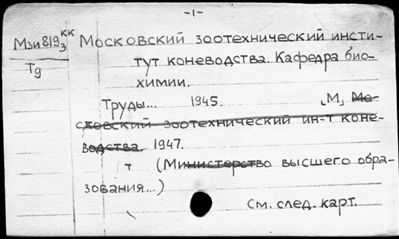 -1-
Мзи819₃кк Московский зоотехнический инсти-
Тд тут коневодства. Кафедра био-
химии.
Труды... 1945. [М, Мо-
сковский зоотехнический ин-т коне-
водства 1947.
т (Министерство высшего обра-
зования...)
См. след. карт.